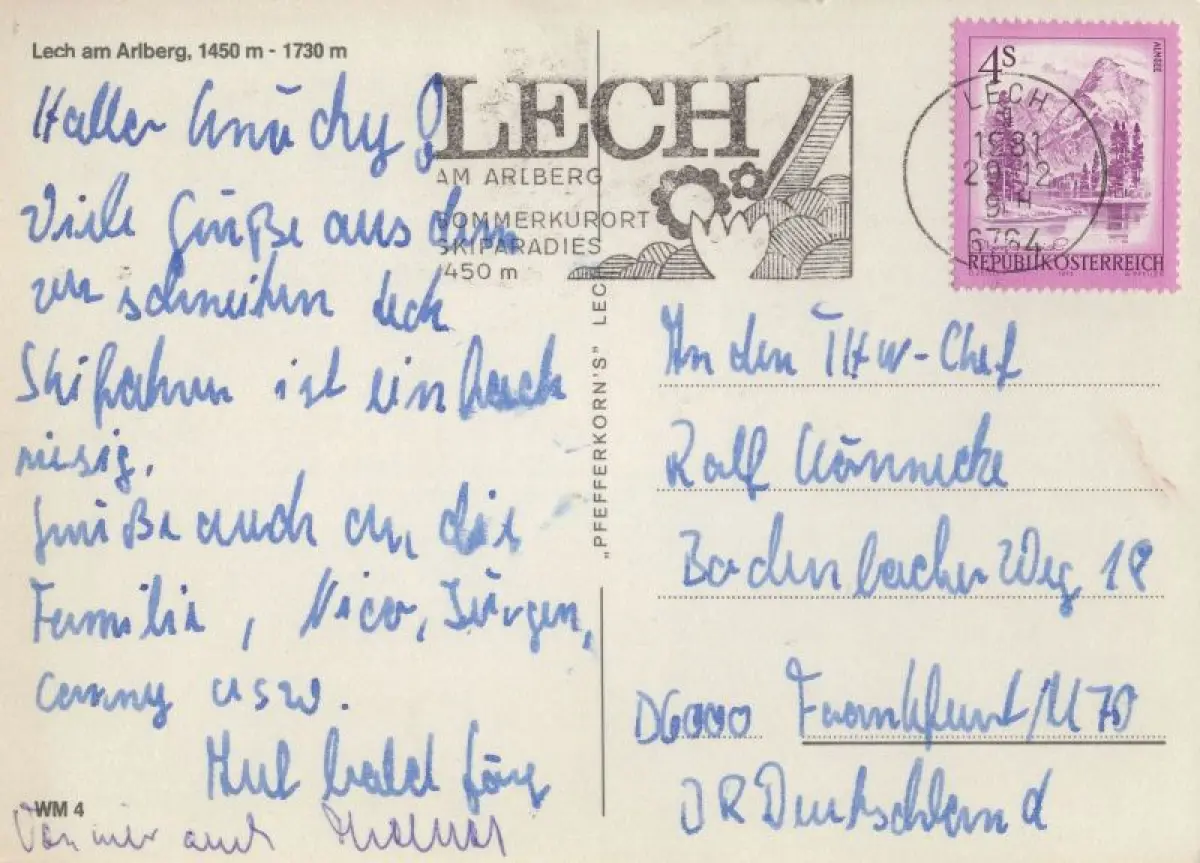 Lech am Arlberg, 1450 m - 1730 m
Hallo
Viele Grüße aus dem
verschneiten Lech
Skifahren ist einfach
riesig.
Grüße auch an die
Familie, Nico, Jürgen,
Conny usw.
bald Jörg
Von mir auch
WM 4
LECH
AM ARLBERG
SOMMERKURORT
SKIPARADIES
1450 m
„PFEFFERKORN'S" LECH
4S
ALMSEE
REPUBLIK ÖSTERREICH
LECH
1981
29.12
9H
6764
An den THW-Chef
Ralf Könnecke
Bodenbacher Weg 18
D6000 Frankfurt/M 70
BR Deutschland